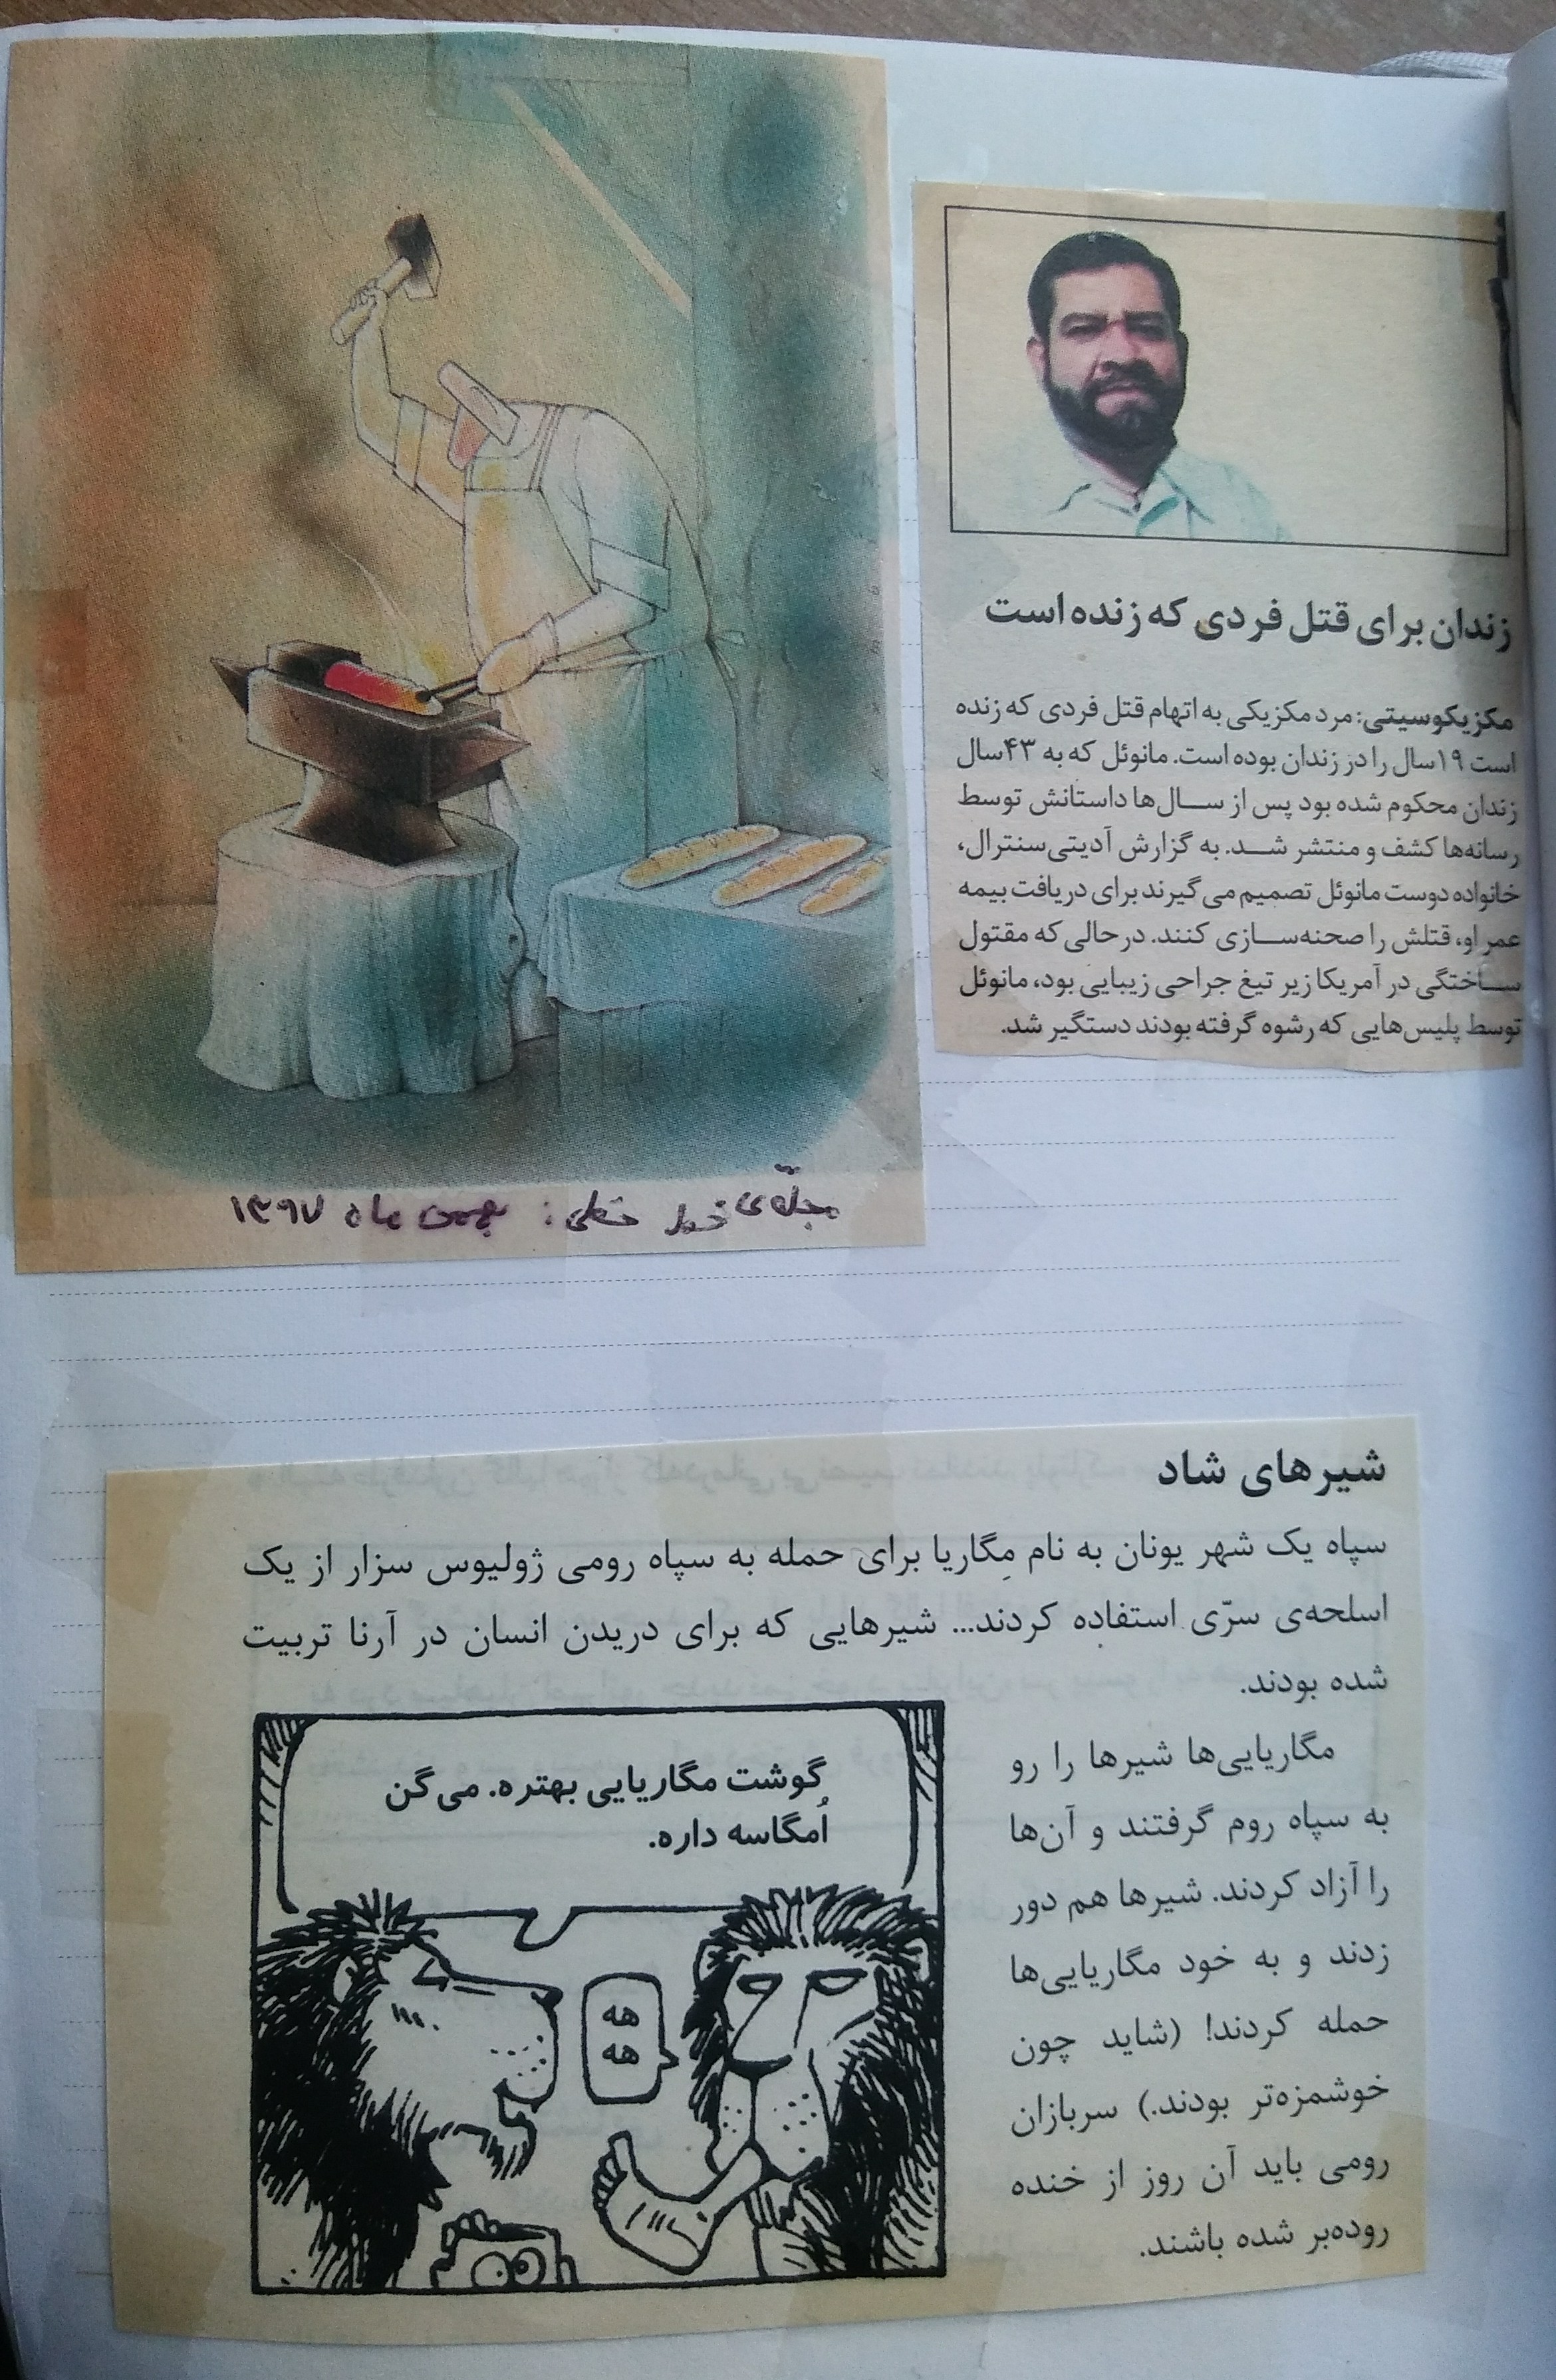 زندان برای قتل فردی که زنده است
مکزیکوسیتی: مرد مکزیکی به اتهام قتل فردی که زنده
است ۱۹سال را در زندان بوده است. مانوئل که به ۴۳سال
زندان محکوم شده بود پس از سال‌ها داستانش توسط
رسانه‌ها کشف و منتشر شد. به گزارش آدیتی‌سنترال،
خانواده دوست مانوئل تصمیم می‌گیرند برای دریافت بیمه
عمر او، قتلش را صحنه‌سازی کنند. در حالی که مقتول
ساختگی در آمریکا زیر تیغ جراحی زیبایی بود، مانوئل
توسط پلیس‌هایی که رشوه گرفته بودند دستگیر شد.
مجله‌ی خط خطی: بهمن ماه ۱۳۹۷
شیرهای شاد
سپاه یک شهر یونان به نام مِگاریا برای حمله به سپاه رومی ژولیوس سزار از یک
اسلحه‌ی سرّی استفاده کردند... شیرهایی که برای دریدن انسان در آرنا تربیت
شده بودند.
مگاریایی‌ها شیرها را رو
به سپاه روم گرفتند و آن‌ها
را آزاد کردند. شیرها هم دور
زدند و به خود مگاریایی‌ها
حمله کردند! (شاید چون
خوشمزه‌تر بودند.) سربازان
رومی باید آن روز از خنده
روده‌بر شده باشند.
گوشت مگاریایی بهتره. می‌گن
اُمگاسه داره.
هه
هه